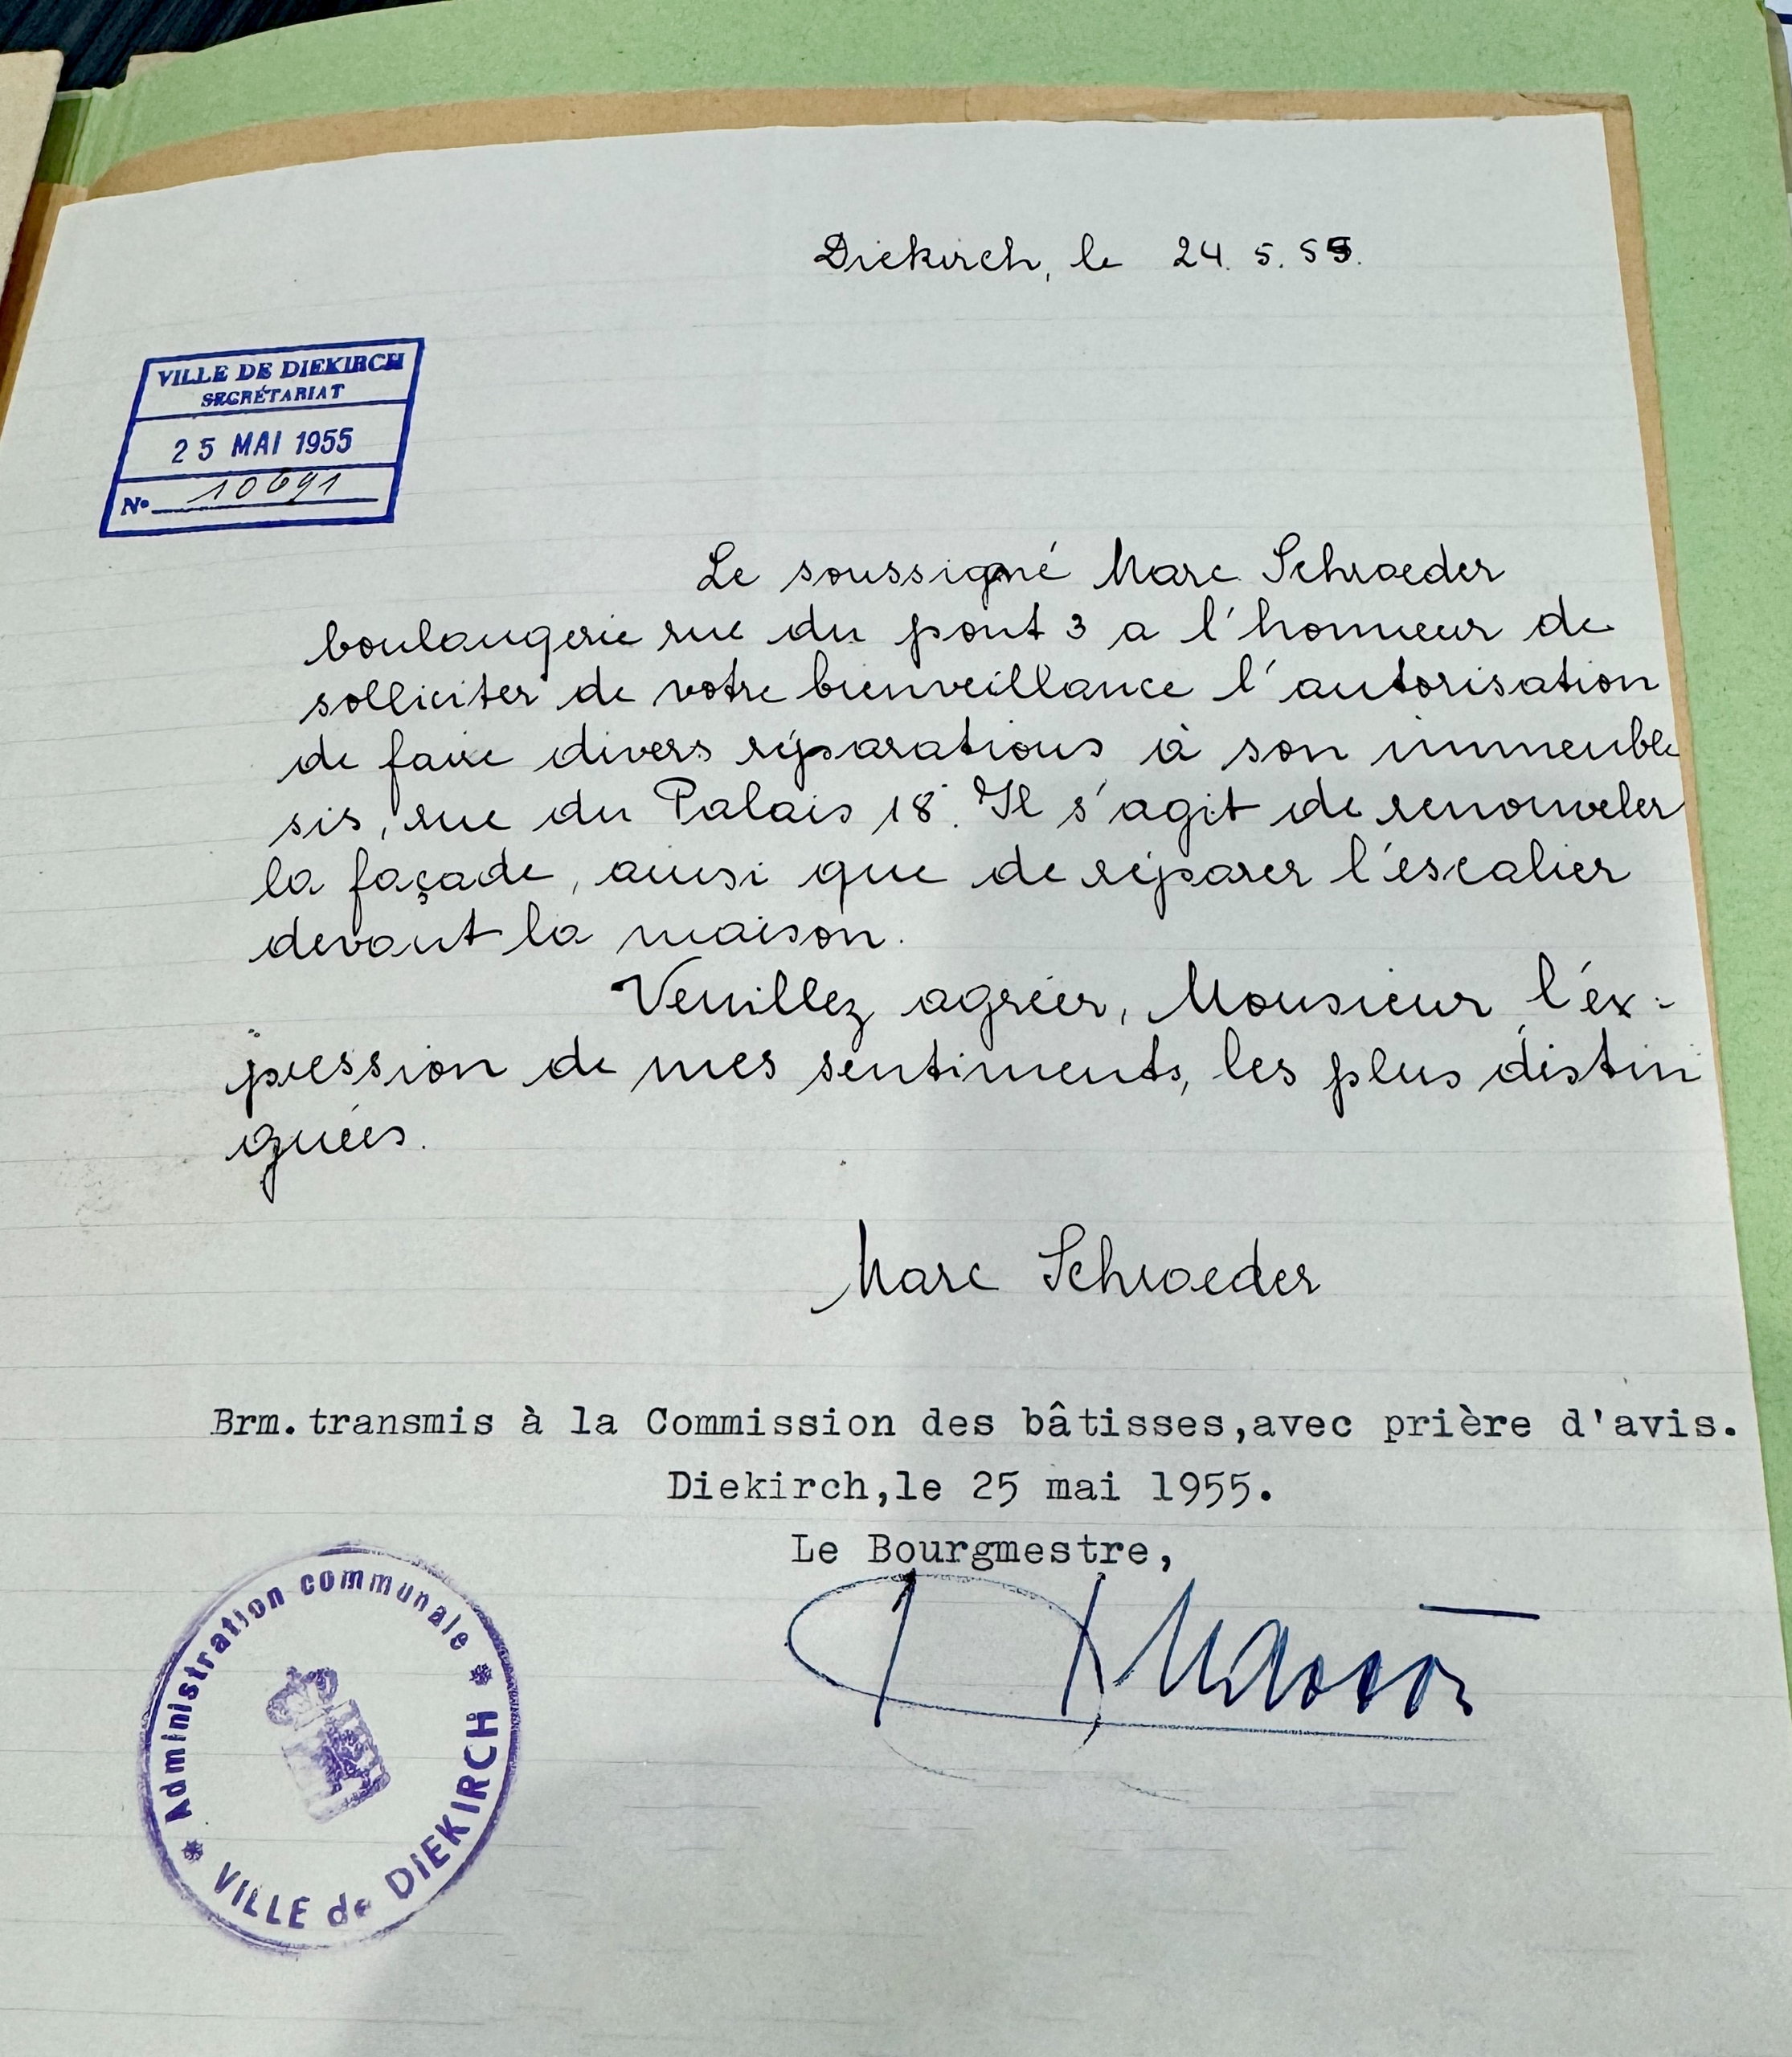 Diekirch, le 24. 5. 55.
VILLE DE DIEKIRCH
SECRÉTARIAT
25 MAI 1955
No. 10691
Le soussigné Marc Schroeder
boulangerie rue du pont 3 a l'honneur de
solliciter de votre bienveillance l'autorisation
de faire divers réparations à son immeuble
sis, rue du Palais 18. Il s'agit de renouveler
la façade, ainsi que de réparer l'escalier
devant la maison.
Veuillez agréer, Monsieur, l'éx-
pression de mes sentiments, les plus distin
guées.
Marc Schroeder
Brm.transmis à la Commission des bâtisses,avec prière d'avis.
Diekirch,le 25 mai 1955.
Le Bourgmestre,
Administration communale
VILLE de DIEKIRCH